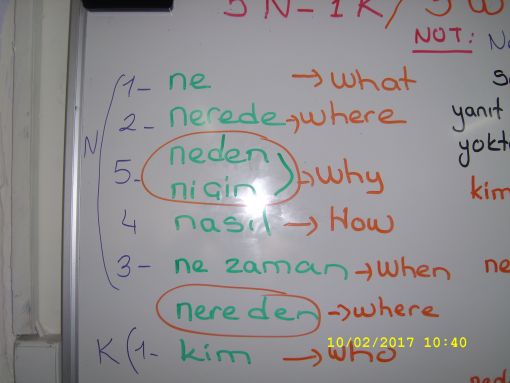 5N-1K/5W
NOT:
1- ne → what
2- nerede → where
yanıt
N
5- neden
niçin → why
kim
4 nasıl → How
3- ne zaman → when
ne
nereden → where
K (1- kim → who
10/02/2017 10:40